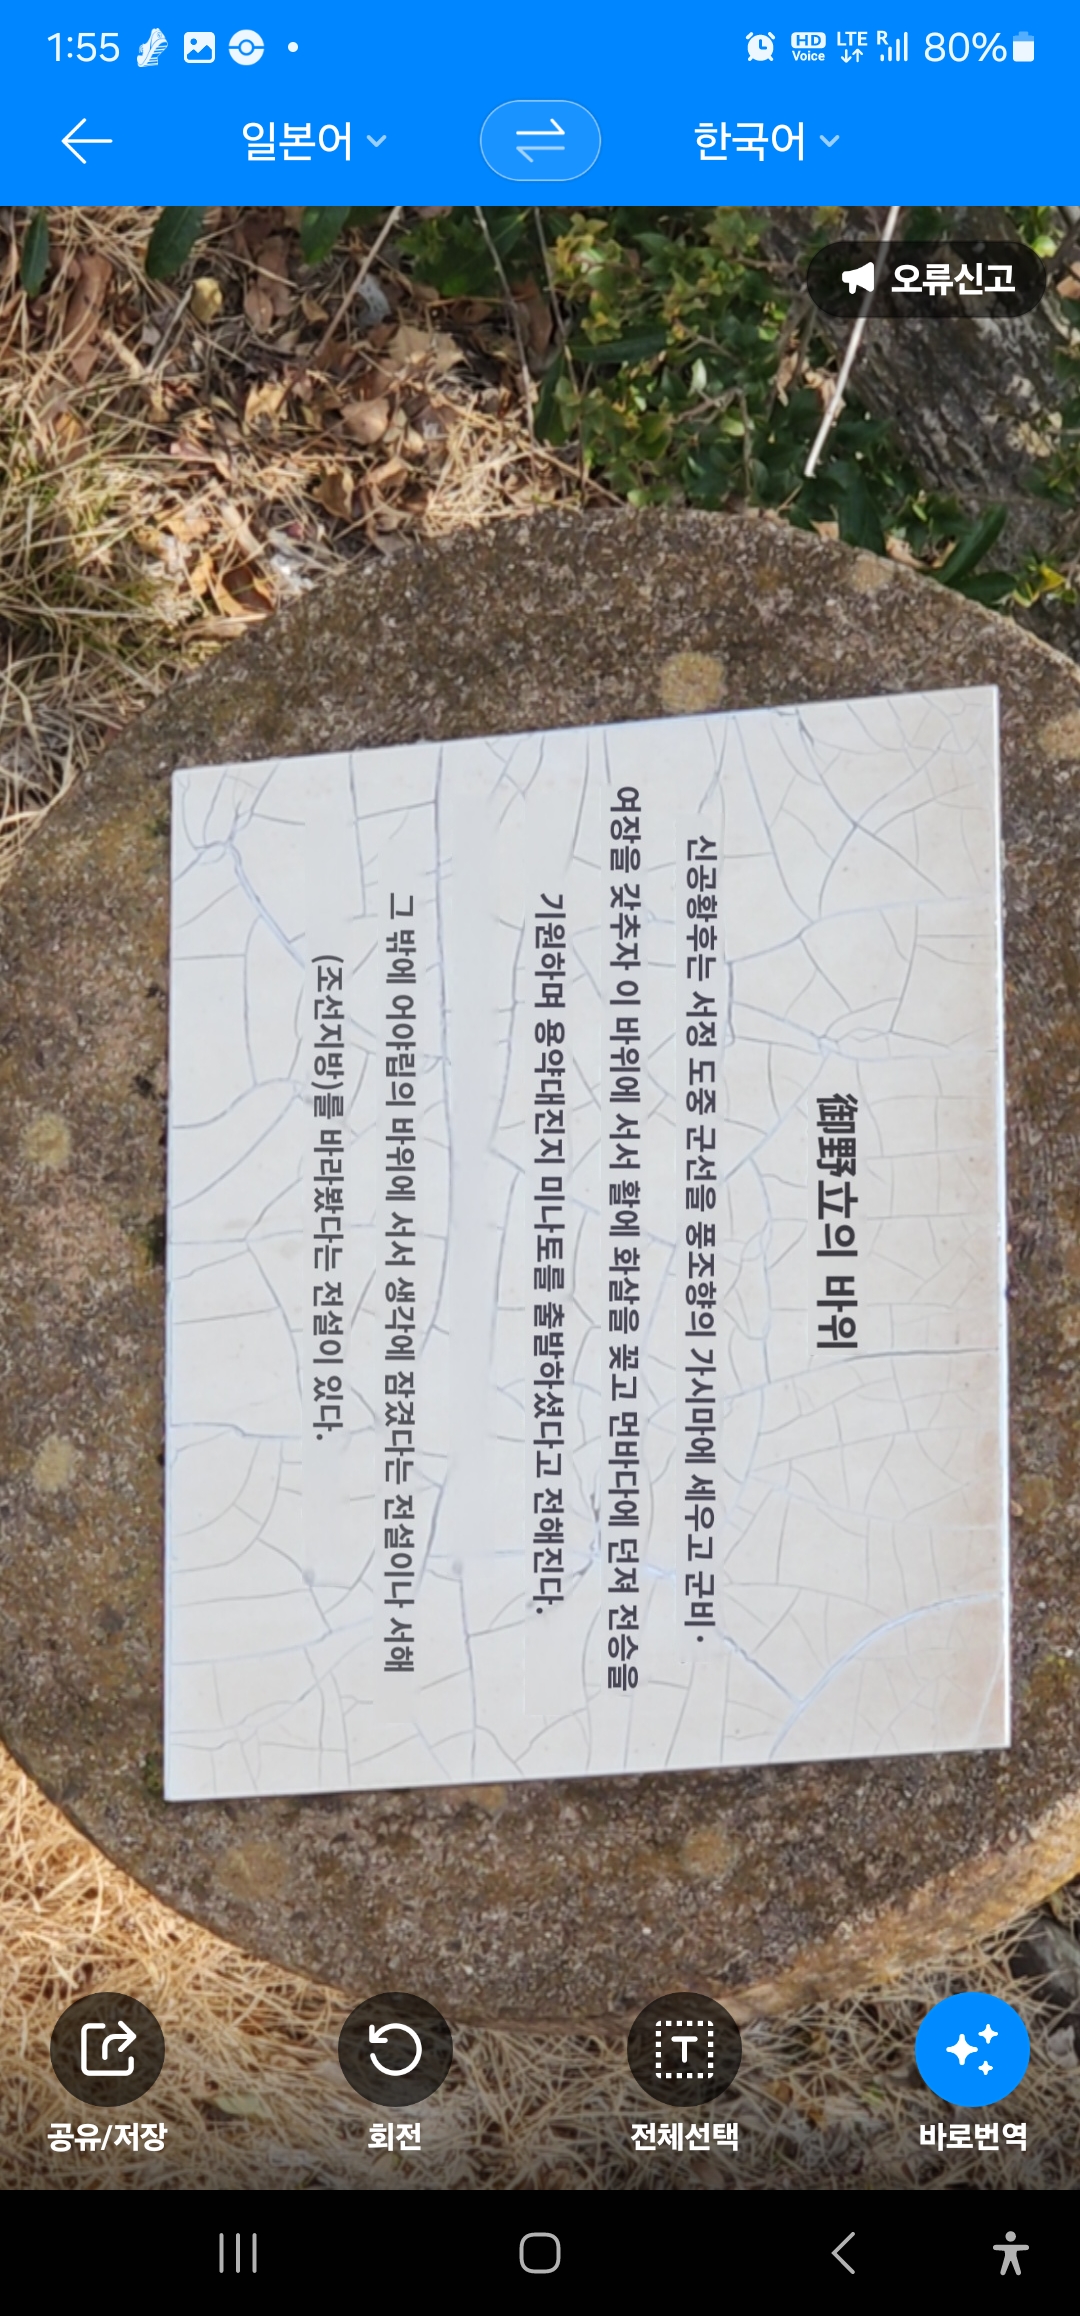 1:55
HD Voice
LTE
R
80%
일본어
한국어
오류신고
御野立의 바위
신공황후는 서정 도중 군선을 풍조향의 가시마에 세우고 군비·
여장을 갖추자 이 바위에 서서 활에 화살을 꽂고 먼바다에 던져 전승을
기원하며 용약대진지 미나토를 출발하셨다고 전해진다.
그 밖에 어야립의 바위에 서서 생각에 잠겼다는 전설이나 서해
(조선지방)를 바라봤다는 전설이 있다.
T
공유/저장
회전
전체선택
바로번역